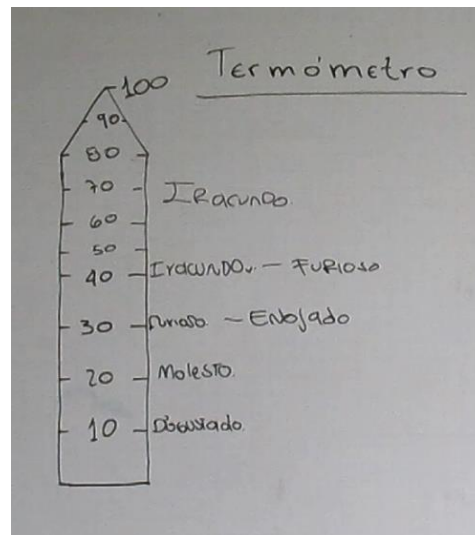 Termómetro
100
90
80
70 Iracundo
60
50
40 Iracundo. - Furioso
30 Furioso - Enojado
20 Molesto.
10 Disgustado.